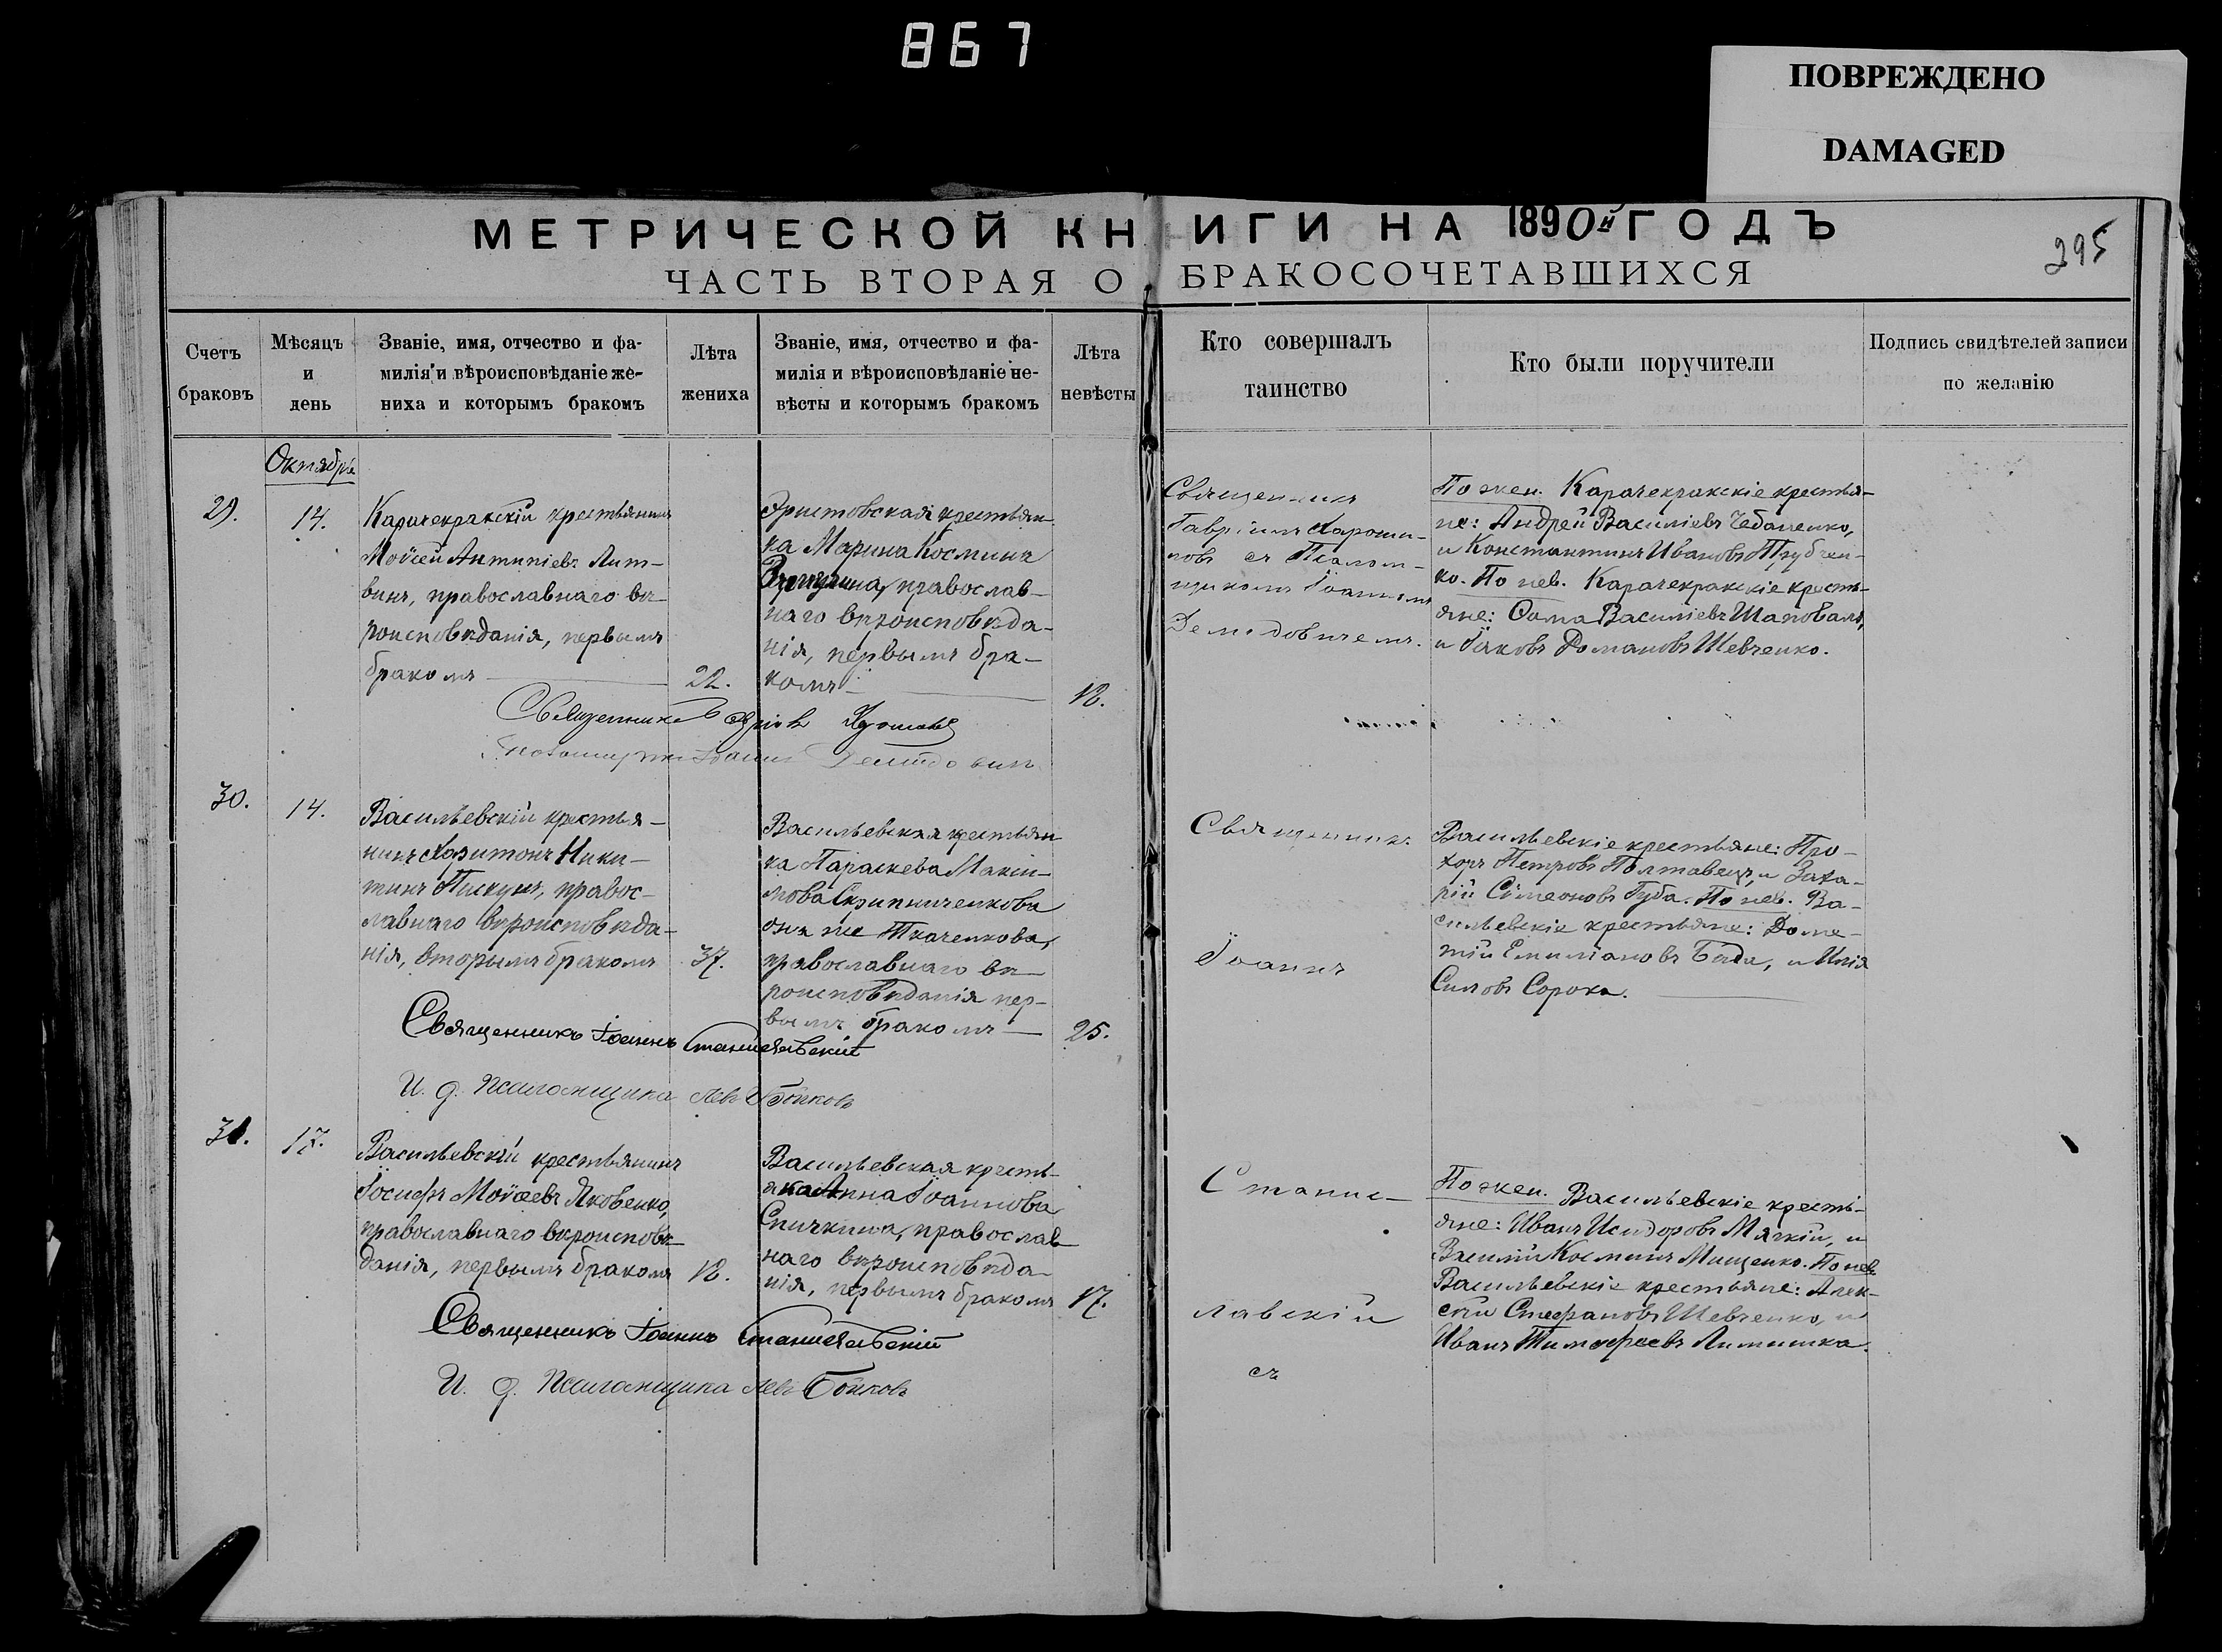 867
ПОВРЕЖДЕНО
DAMAGED
МЕТРИЧЕСКОЙ КНИГИ НА 1890й ГОДЪ
295
ЧАСТЬ ВТОРАЯ О БРАКОСОЧЕТАВШИХСЯ
Счетъ
браковъ
Мѣсяцъ
и
день
Званіе, имя, отчество и фа-
милія и вѣроисповѣданіе же-
ниха и которымъ бракомъ
Лѣта
жениха
Званіе, имя, отчество и фа-
милія и вѣроисповѣданіе не-
вѣсты и которымъ бракомъ
Лѣта
невѣсты
Кто совершалъ
таинство
Кто были поручители
Подпись свидѣтелей записи
по желанію
Октября
29.
14.
Карачекракскій крестьянинъ
Моѵсей Антипіевъ Лит-
винъ, православнаго вѣ-
роисповѣданія, первымъ
бракомъ
22.
Эристовская крестьян-
ка Марина Космина
православ-
наго вѣроисповѣда-
нія, первымъ бра-
комъ
18.
Священникъ
Гавріилъ Хароши-
ловъ съ Псалом-
щикомъ Іоанномъ
Демидовичемъ.
По жен. Карачекракскіе крестья-
не: Андрей Василіевъ Чебаненко,
и Константинъ Ивановъ Трубчен-
ко. По нев. Карачекракскіе кресть-
яне: Сама Василіевъ Шаповалъ,
и Іаковъ Романовъ Шевченко.
Священникъ
Демидовичъ
30.
14.
Васильевскій крестья-
нинъ Харитонъ Ники-
тинъ Пискунъ, правос-
лавнаго вѣроисповѣда-
нія, вторымъ бракомъ
37.
Васильевская крестьян-
ка Параскева Макси-
мова Скрипниченкова
она же Ткаченкова,
православнаго вѣ-
роисповѣданія пер-
вымъ бракомъ
25.
Священникъ
Іоаннъ
Васильевскіе крестьяне: Про-
хоръ Петровъ Полтавецъ, и Заха-
рій Симеоновъ Губа. По нев. Ва-
сильевскіе крестьяне: Доме-
тій Емиліановъ Бѣда, и Илія
Силовъ Сорока.
Священникъ Іоаннъ Станиславскій
И. д. Псаломщика Левъ Бойковъ
31.
17.
Васильевскій крестьянинъ
Іосифъ Моѵсеевъ Яковенко,
православнаго вѣроисповѣ-
данія, первымъ бракомъ
18.
Васильевская кресть-
янка Анна Іоаннова
Спичкина, православ-
наго вѣроисповѣда-
нія, первымъ бракомъ
17.
Станис-
лавскій
съ
По жен. Васильевскіе кресть-
яне: Иванъ Исидоровъ Мягкій, и
Василій Косминъ Мищенко. По нев.
Васильевскіе крестьяне: Алек-
сѣй Стефановъ Шевченко, и
Иванъ Тимофеевъ Лимишка.
Священникъ Іоаннъ Станиславскій
И. д. Псаломщика Левъ Бойковъ